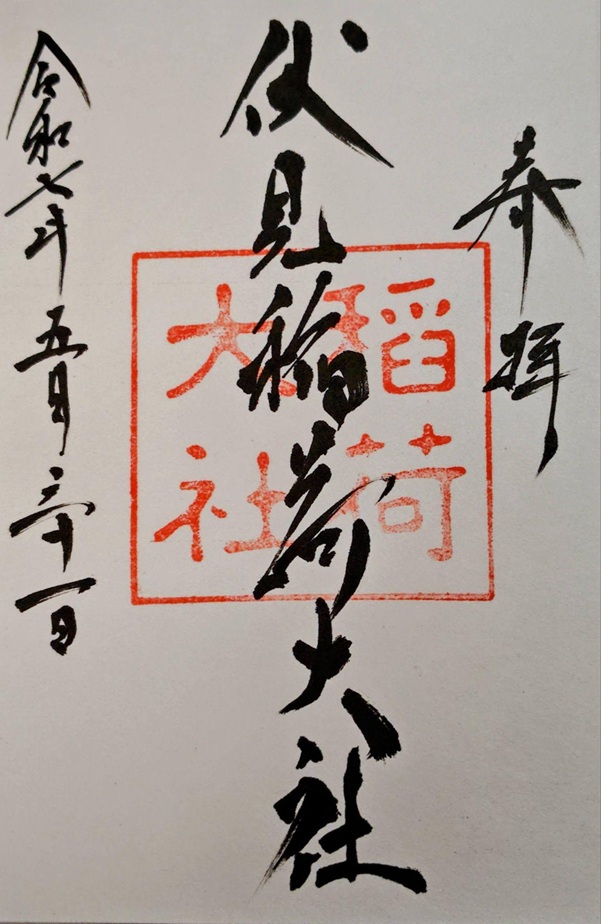 奉拝
伏見稲荷大社
稲荷
大社
令和七年五月三十一日